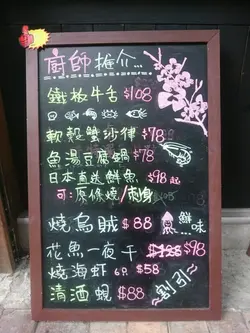 廚師推介...
鐵板牛舌 $108
軟殼蟹沙律 $78
魚湯豆腐鍋 $78
日本直送鮮魚 $98起
可:原條燒/刺身
燒烏賊 $88 魚鮮味
花魚一夜干 $188 $98
燒海蝦 6只 $58
清酒蜆 $88 ~割引~